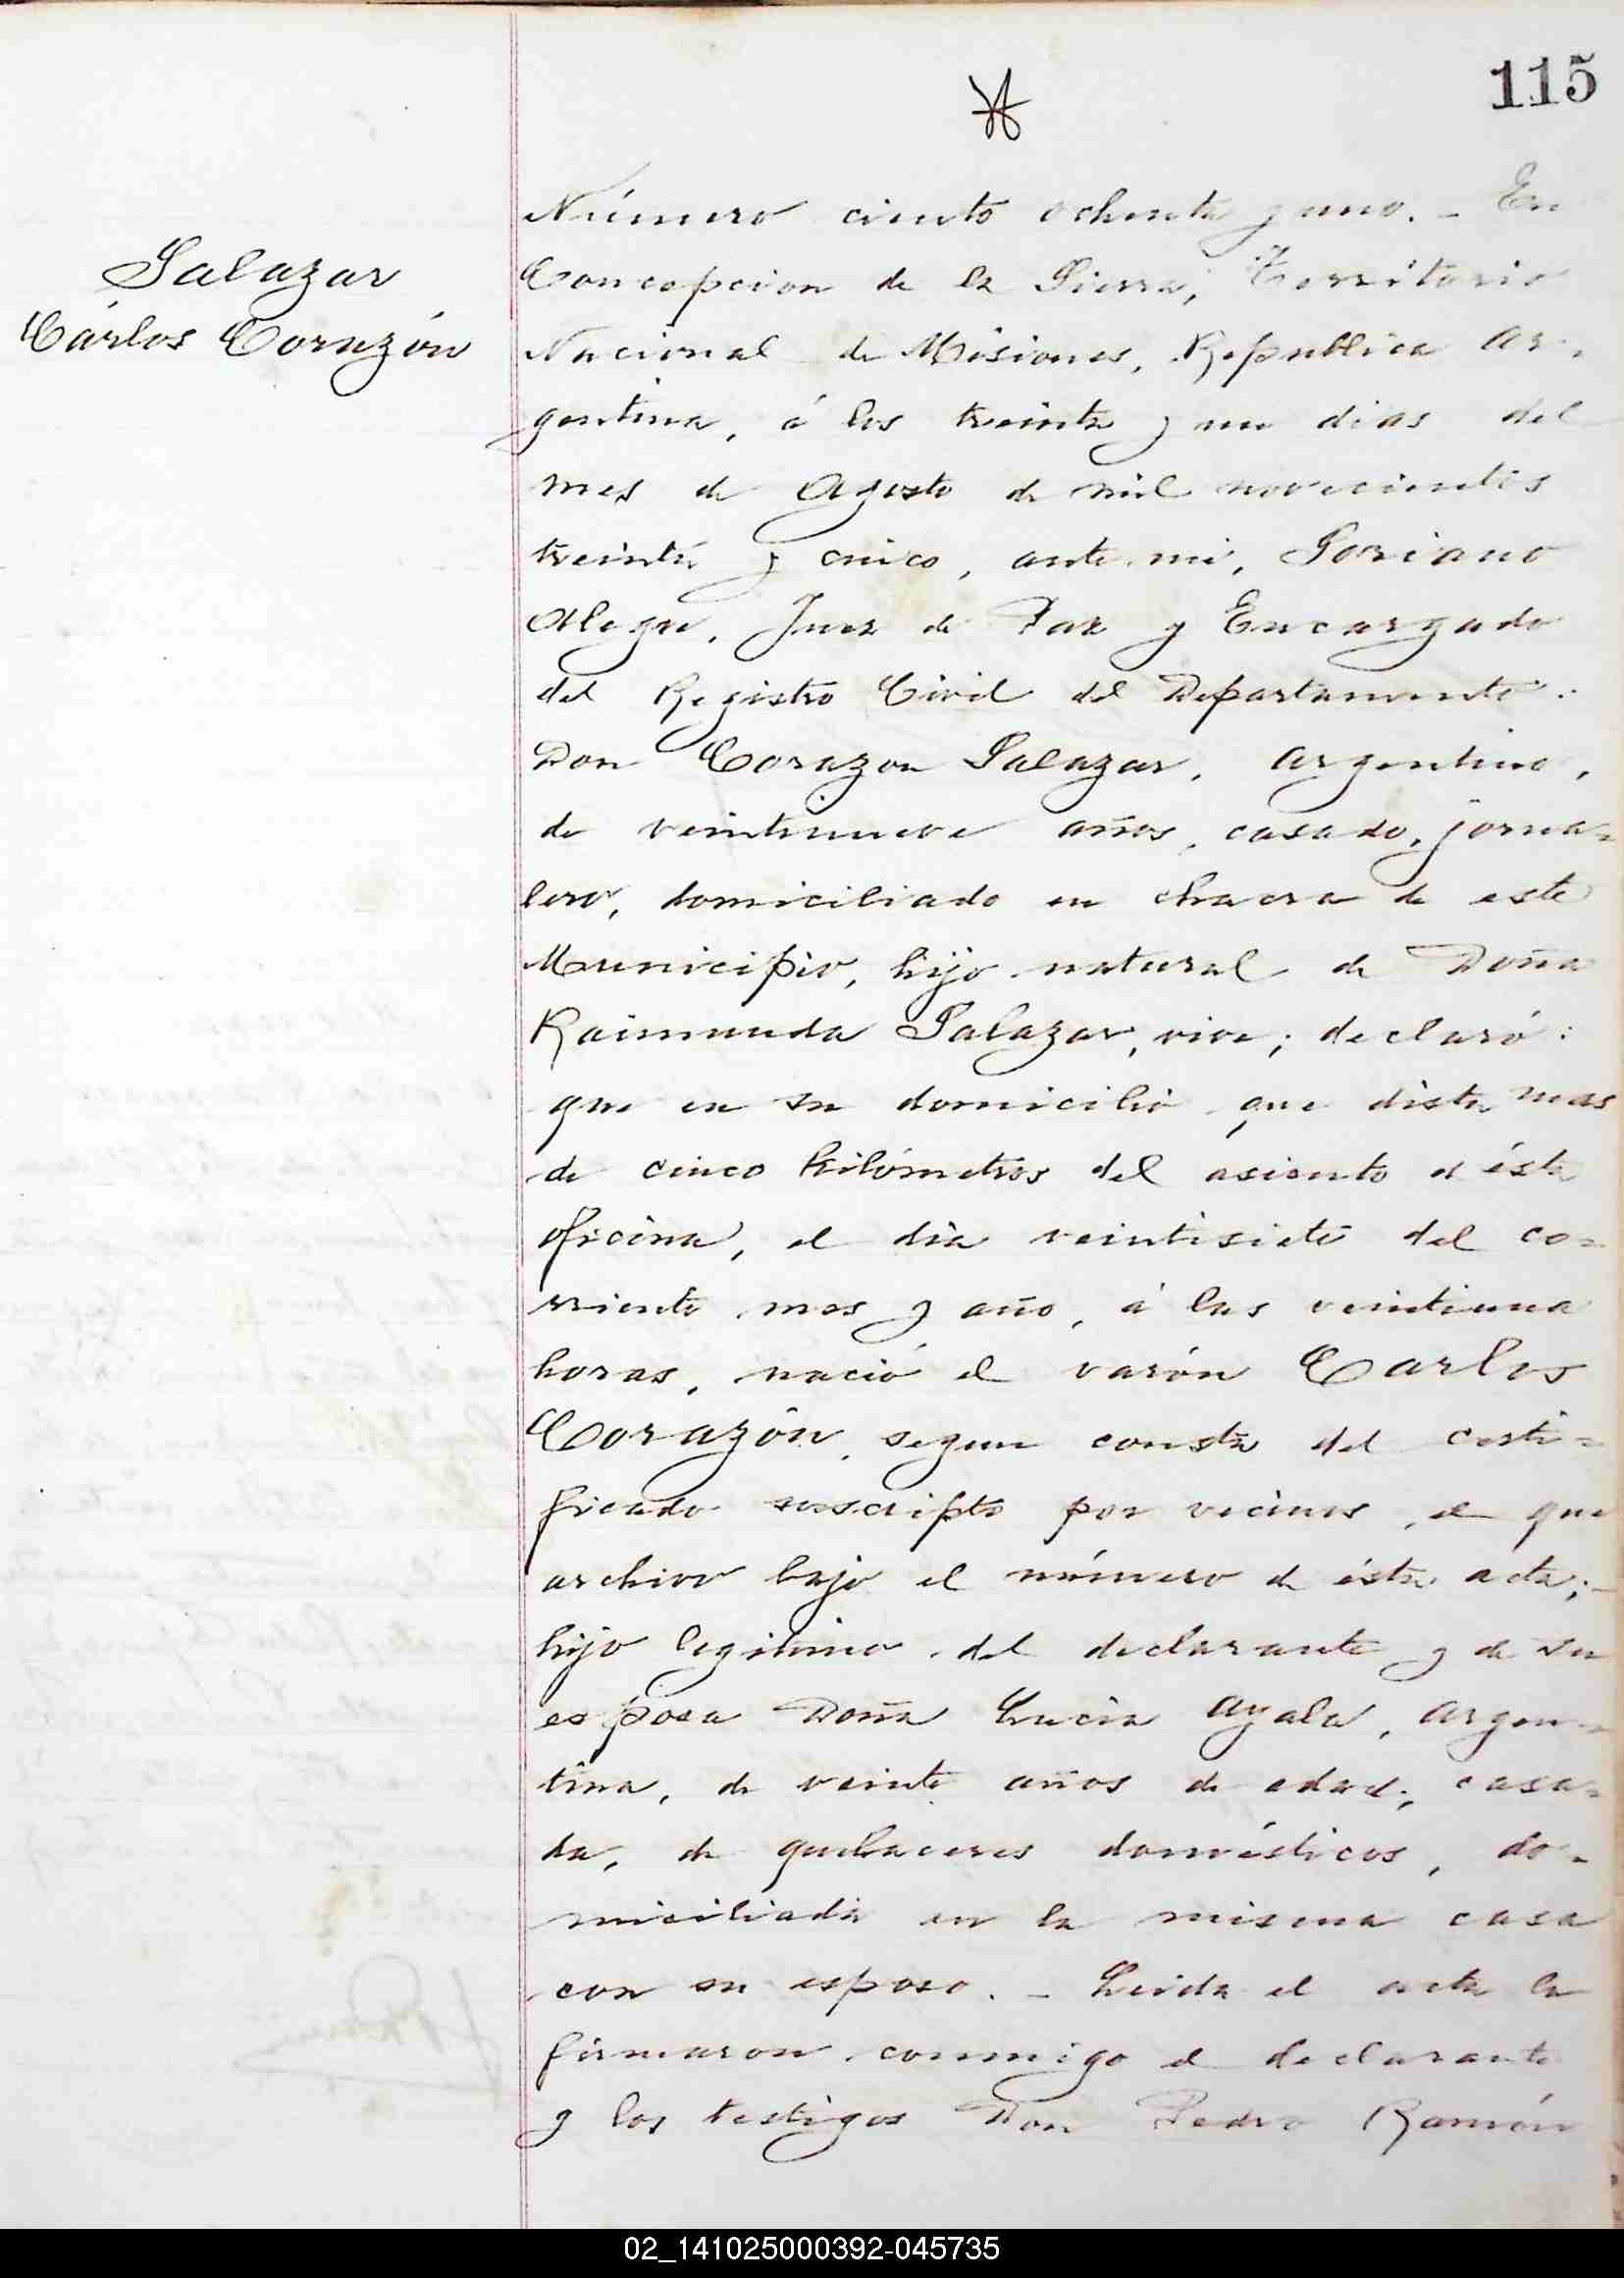 115
Salazar
Cárlos Corazón
Número ciento ochenta y uno. - En
Concepcion de la Sierra, Territorio
Nacional de Misiones, Republica Ar-
gentina, á los treinta y un dias del
mes de Agosto de mil novecientos
treinta y cinco, ante mi, Soriano
Alegre, Juez de Paz y Encargado
del Registro Civil del Departamento:
Don Corazon Salazar, argentino,
de veintinueve años, casado, jorna-
lero, domiciliado en chacra de este
Municipio, hijo natural de Doña
Raimunda Salazar, vive; declaró:
que en su domicilio que dista mas
de cinco kilómetros del asiento d ésta
oficina, el dia veintisiete del co-
rriente mes y año, á las veintiuna
horas, nació el varón Carlos
Corazón, segun consta del certi-
ficado suscripto por vecinos, el que
archivo bajo el número de ésta acta;-
hijo legitimo del declarante y de su
esposa Doña Lucia Ayala, argen-
tina, de veinte años de edad, casa-
da, de quehaceres domésticos, do-
miciliada en la misma casa
con su esposo. - Leida el acta la
firmaron conmigo el declarante
y los testigos Don Pedro Ramón
02_141025000392-045735